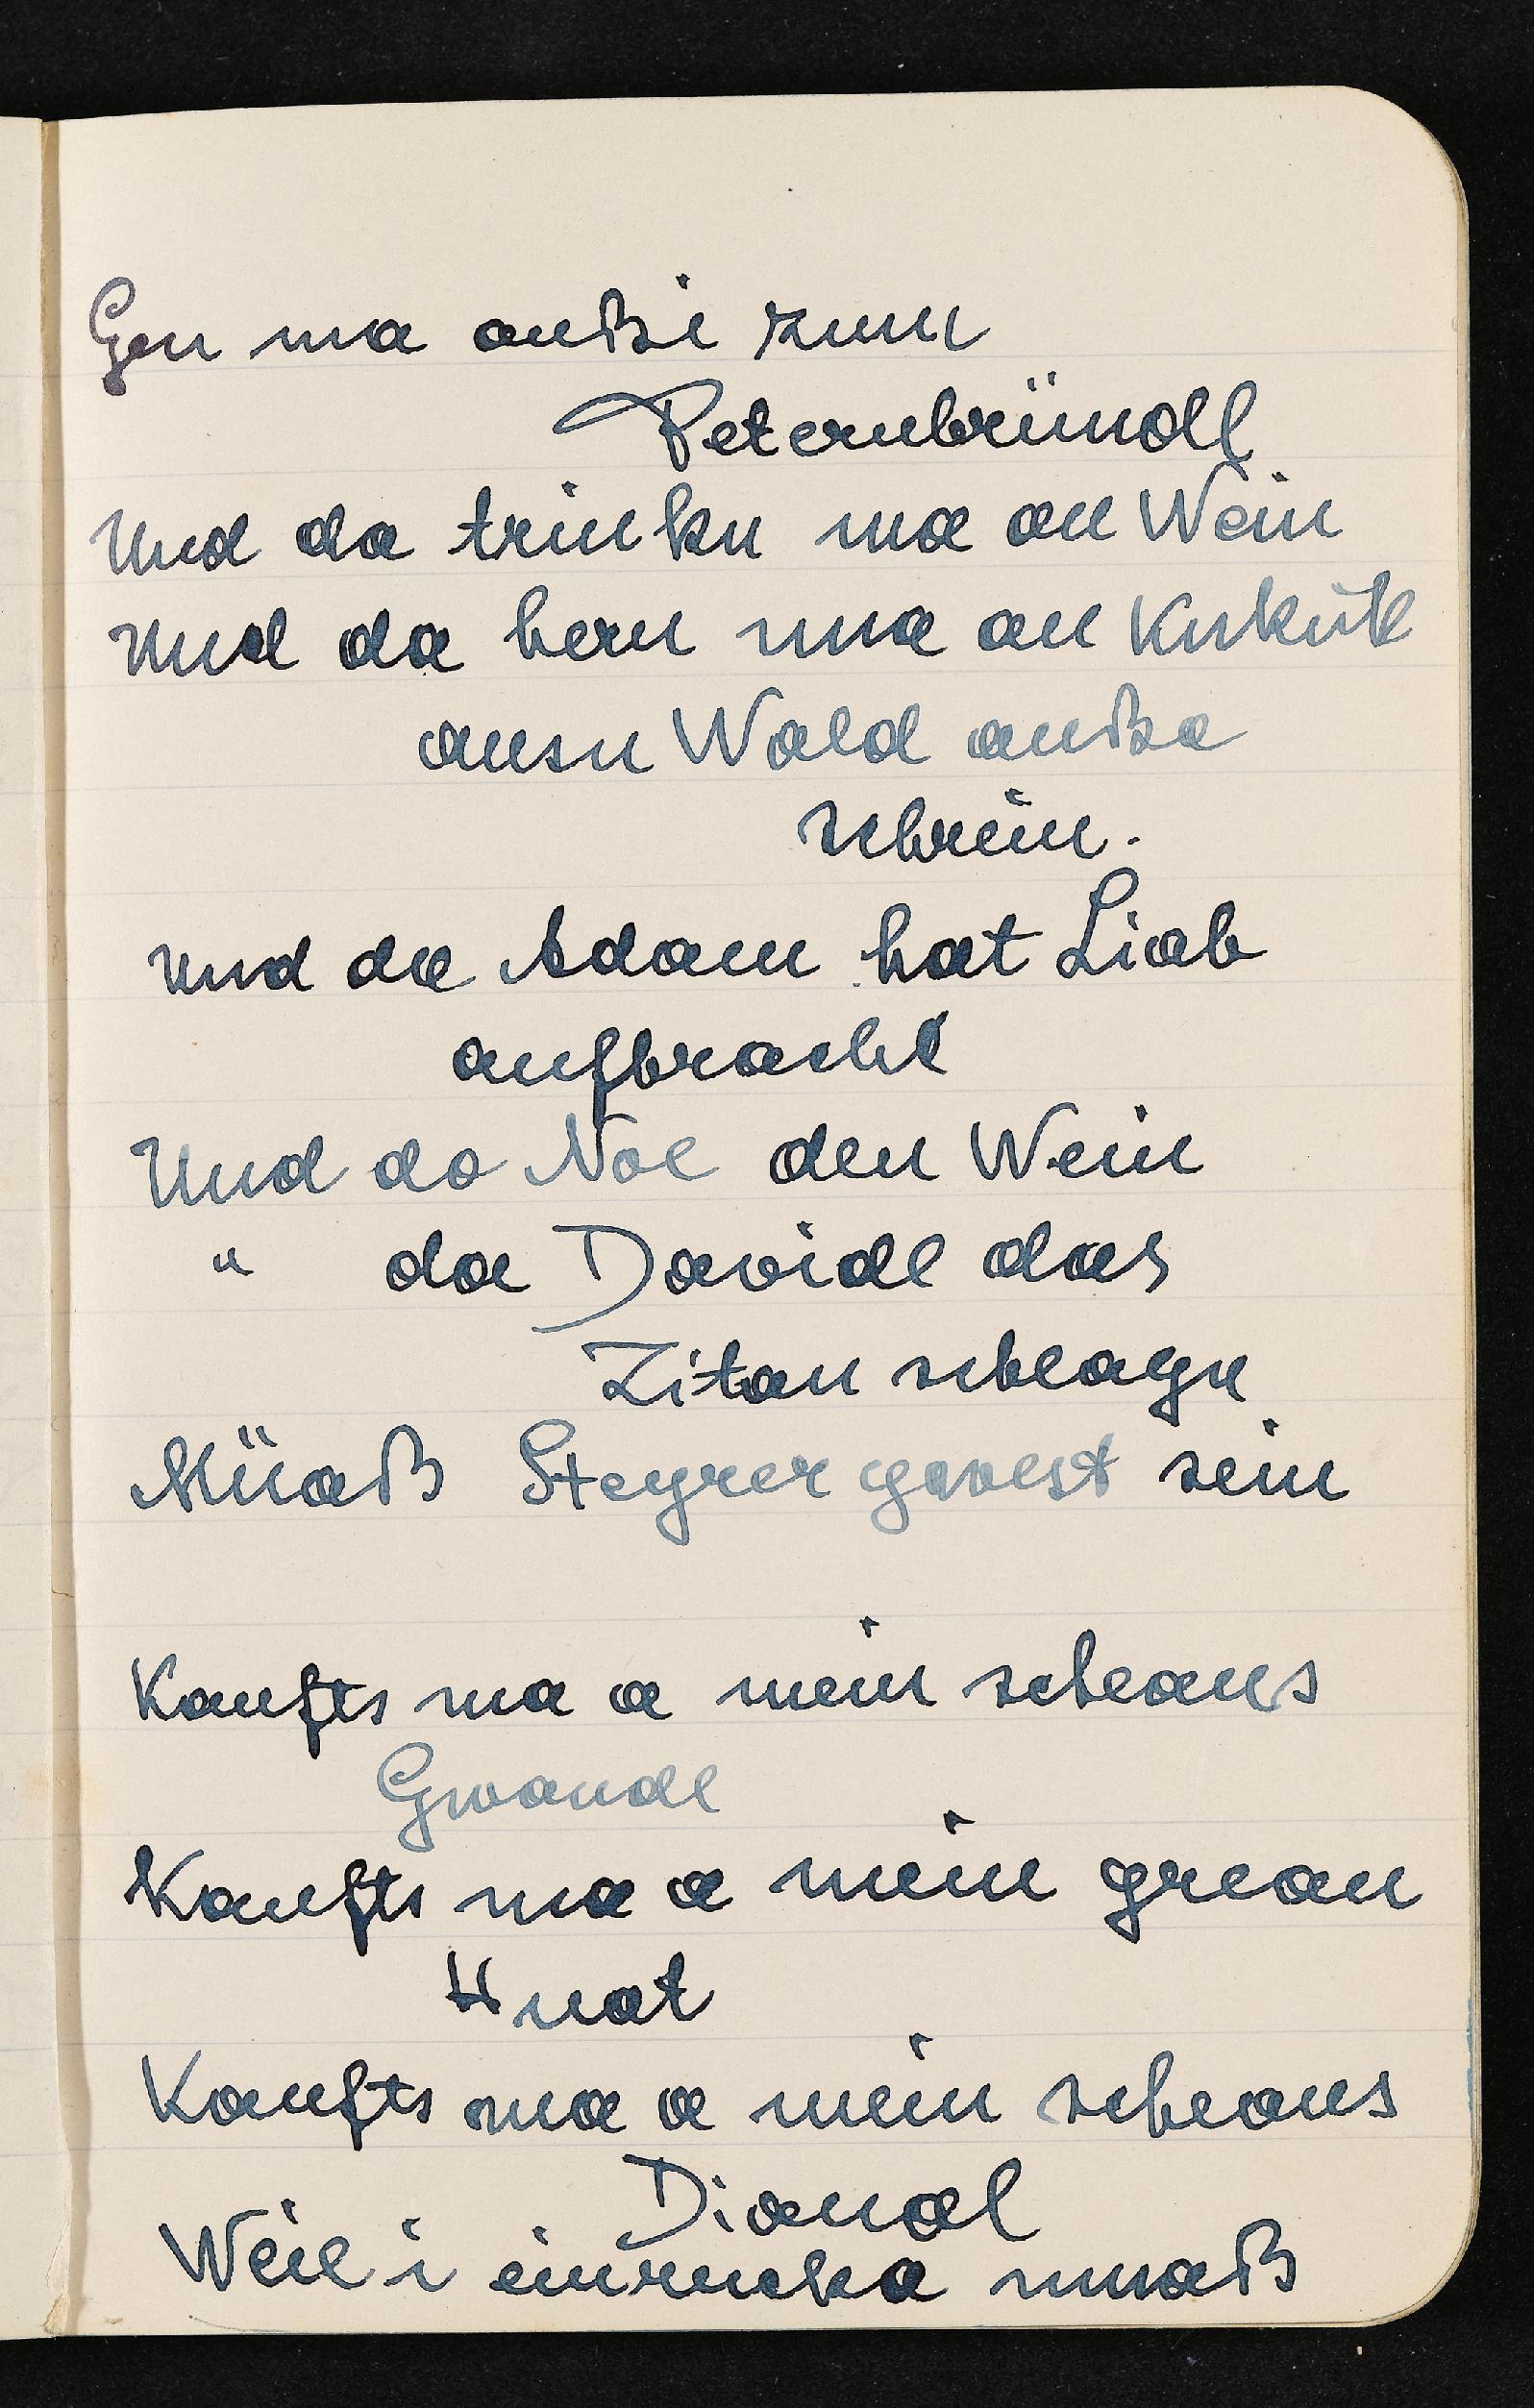 Gen ma außi zum
Peternbründl
Und da trinkn ma an Wein
Und da hern ma an Kukuk
ausn Wald außa
schrein.
Und da Adam hat Liab
aufbracht
Und da Noe den Wein
" da Davidl das
Zitan schlagn
Müaß Steyrer gwest sein
Kaufts ma a mein scheans
Gwandl
Kaufts ma a mein grean
Huat
Kaufts ma a mein scheans
Dianal
Weil i einrucka muaß